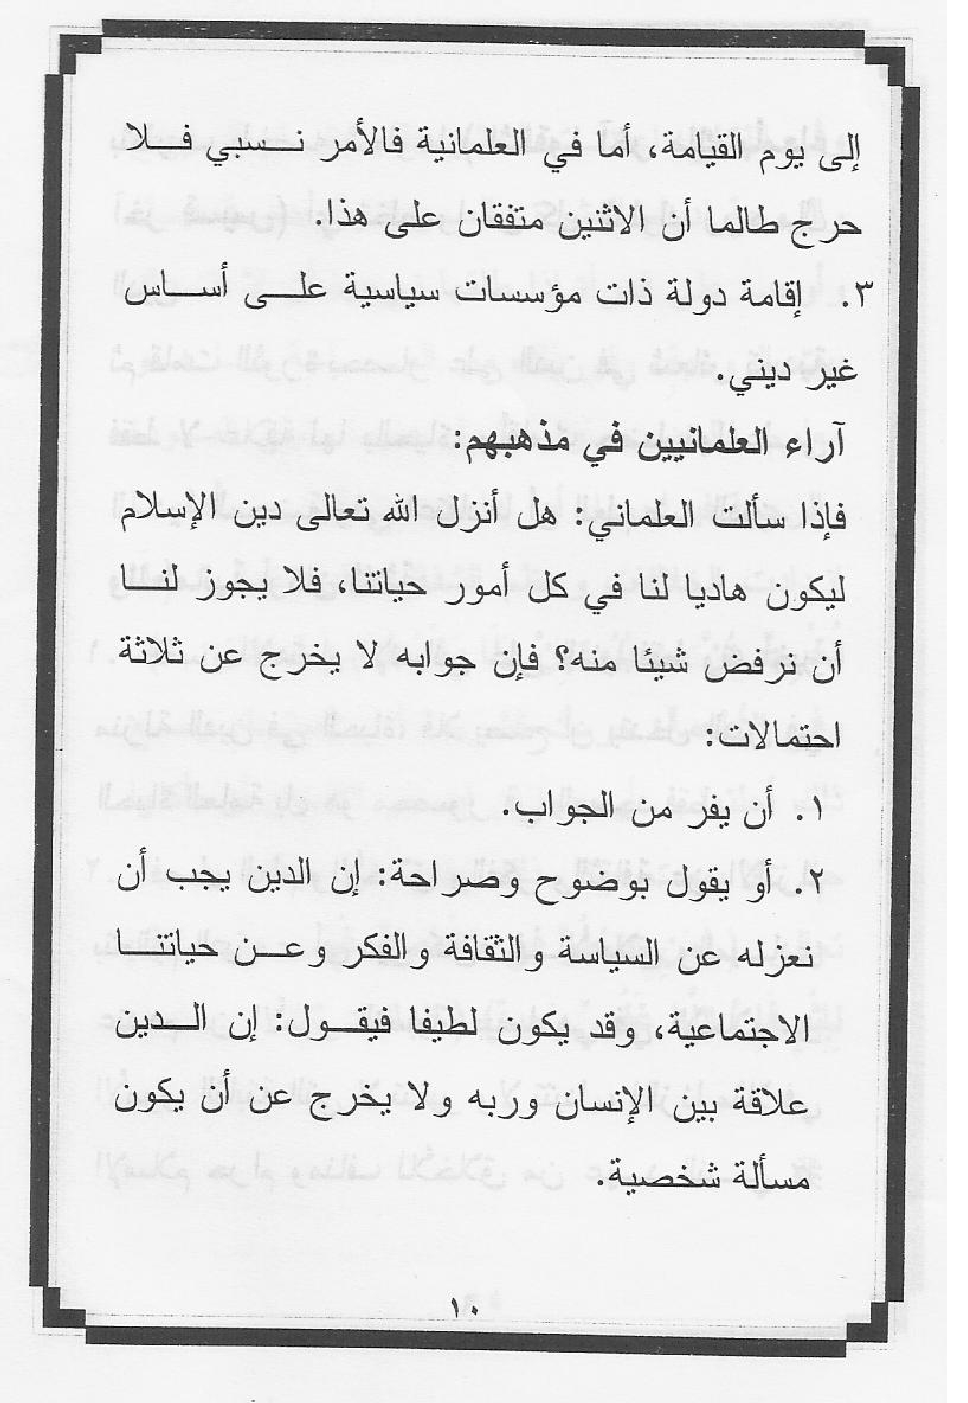 إلى يوم القيامة، أما في العلمانية فالأمر نسبي فلا
حرج طالما أن الاثنين متفقان على هذا.
٣. إقامة دولة ذات مؤسسات سياسية على أساس
غير ديني.
آراء العلمانيين في مذهبهم:
فإذا سألت العلماني: هل أنزل الله تعالى دين الإسلام
ليكون هاديا لنا في كل أمور حياتنا، فلا يجوز لنا
أن نرفض شيئا منه؟ فإن جوابه لا يخرج عن ثلاثة
احتمالات:
١. أن يفر من الجواب.
٢. أو يقول بوضوح وصراحة: إن الدين يجب أن
نعزله عن السياسة والثقافة والفكر وعن حياتنا
الاجتماعية، وقد يكون لطيفا فيقول: إن الدين
علاقة بين الإنسان وربه ولا يخرج عن أن يكون
مسألة شخصية.
١٠